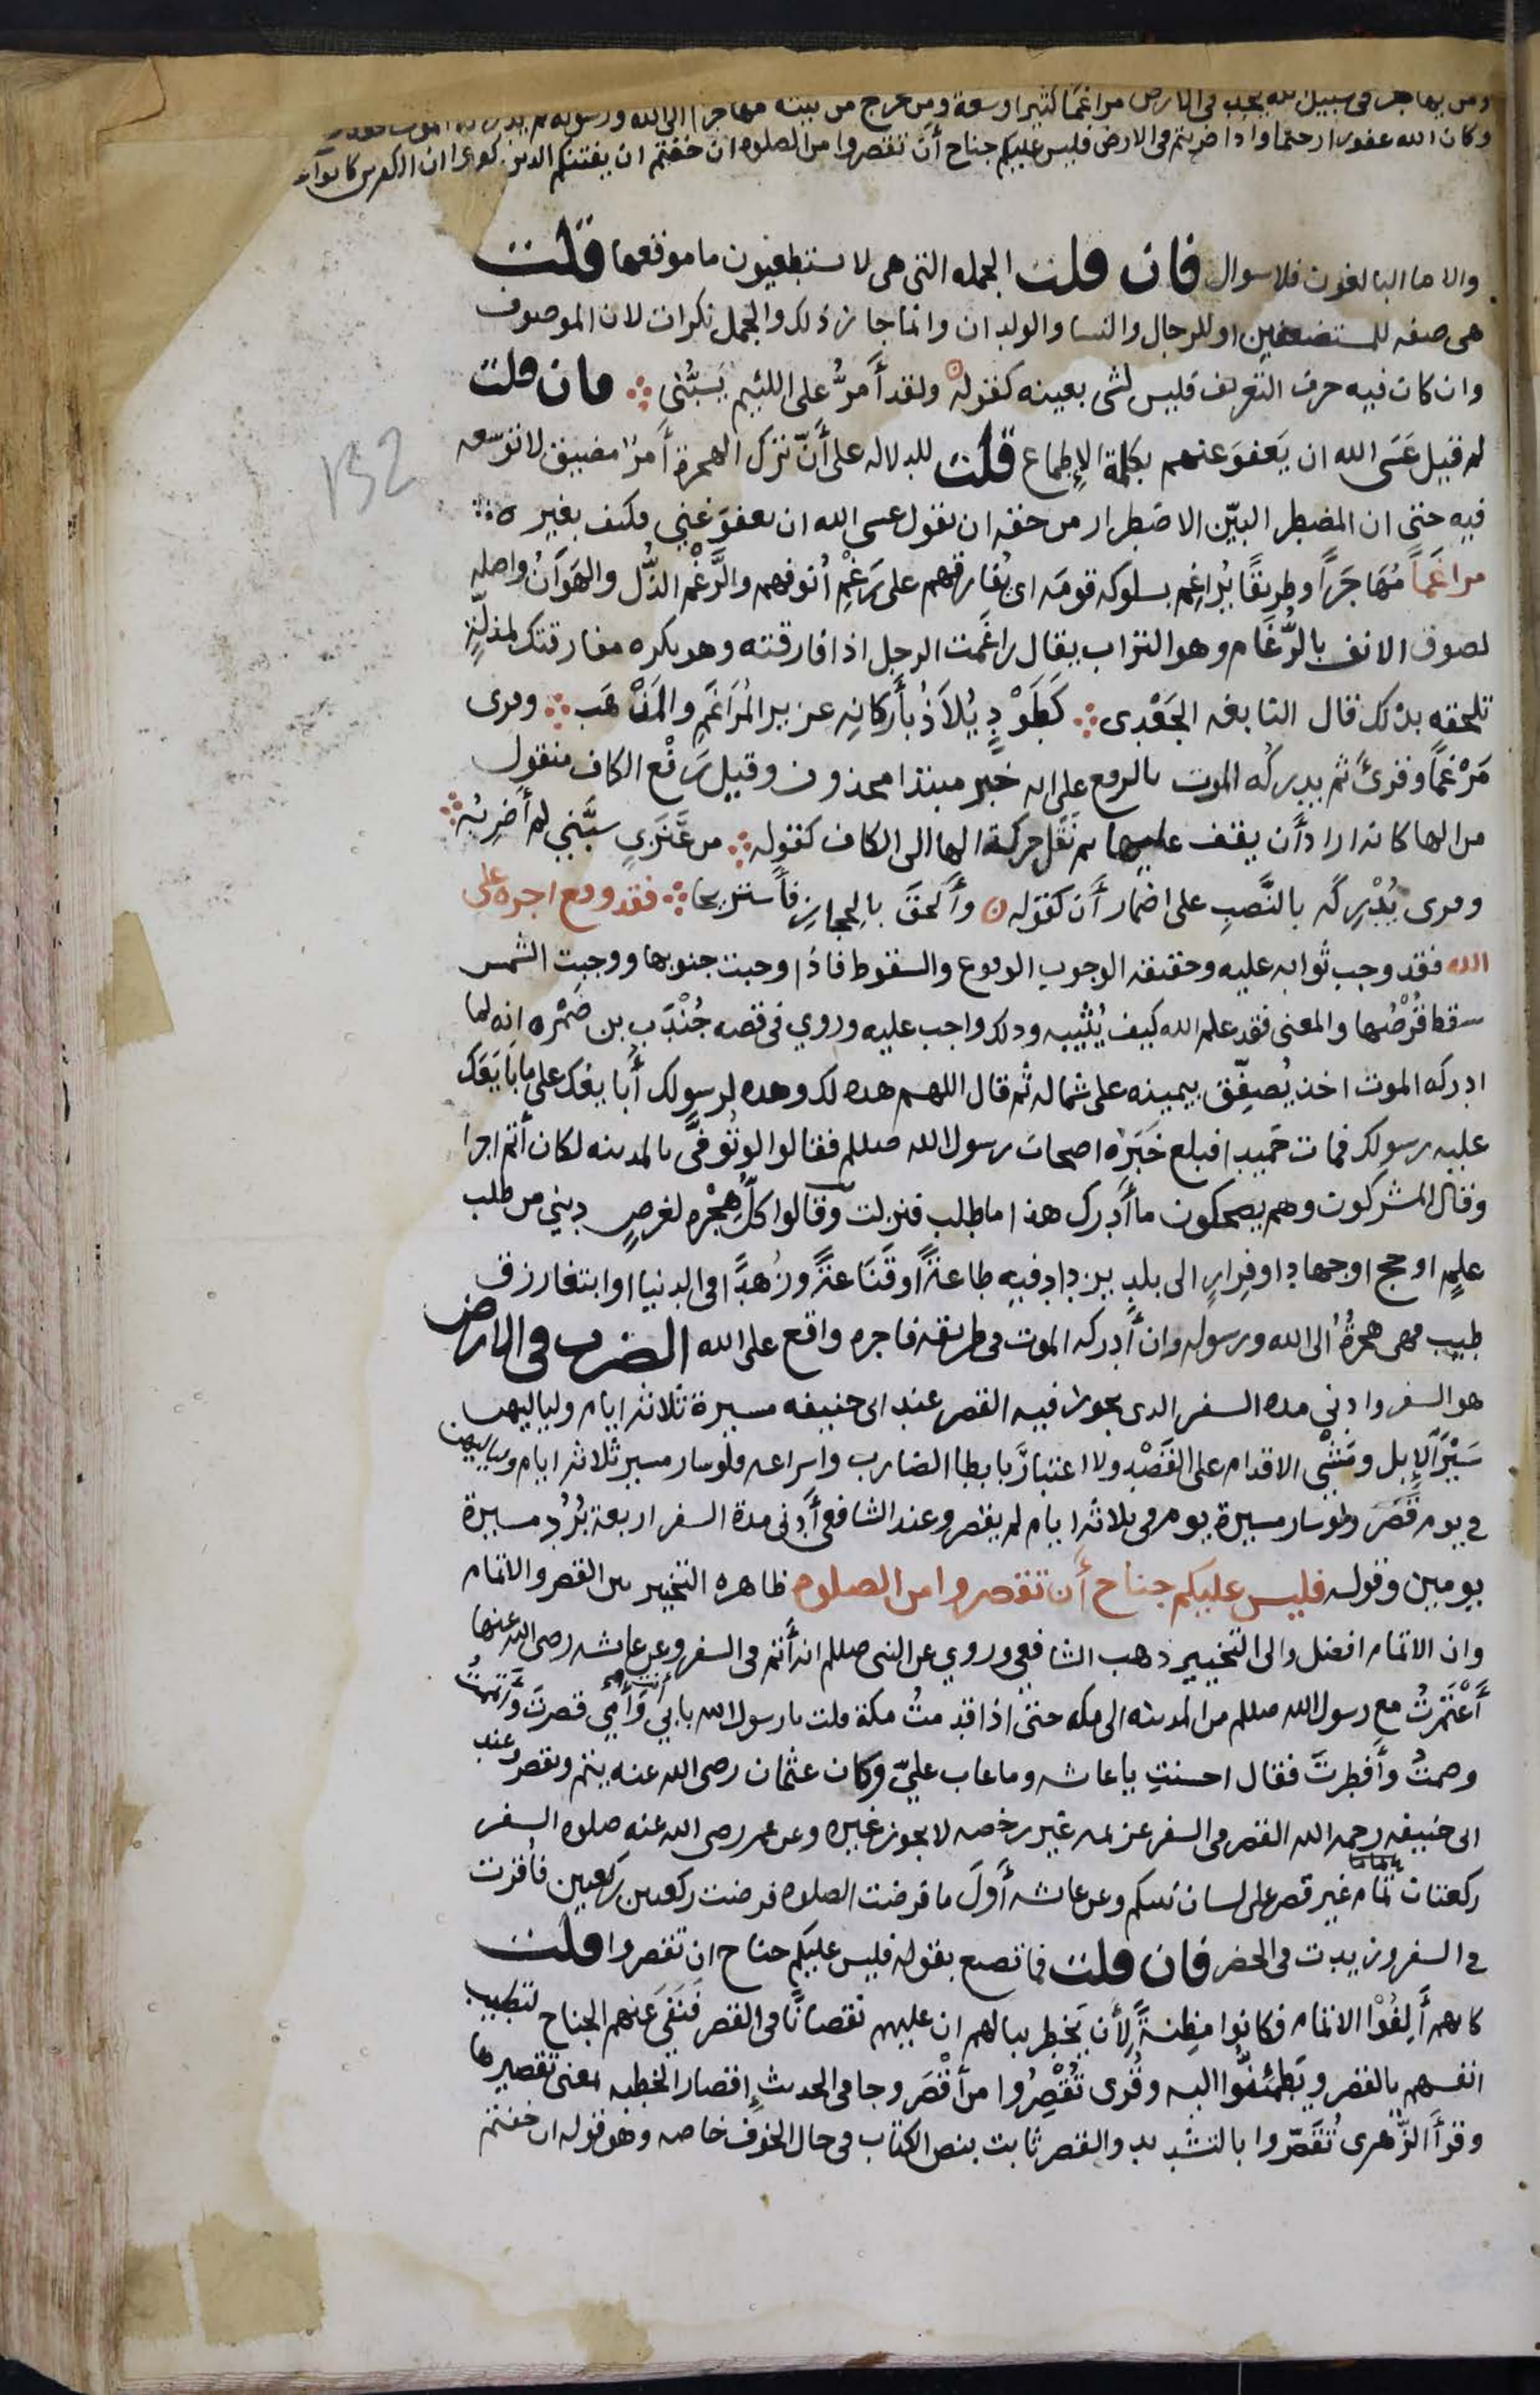 ومن يهاجر فى سبيل الله يجد فى الارض مراغما كثيرا وسعة ومن يخرج من بيته مهاجرا الى الله ورسوله ثم يدركه الموت فقد
وكان الله غفورا رحيما واذا ضربتم فى الارض فليس عليكم جناح أن تقصروا من الصلوه ان خفتم ان يفتنكم الذين كفروا ان الكفرين كانوا
والا ما البالغون فلا سوال فان قلت الجمله التى هى لا يستطيعون ما موقعها قلت
هى صفه للمستضعفين او للرجال والنسا والولدان وانما جاز ذلك والجمل نكرات لان الموصوف
وان كان فيه حرف التعريف فليس لشى بعينه كقوله ولقد أمرُّ على اللئيم يَسُبُّنى فان قلت
لم قيل عَسَى الله ان يَعفوَ عنهم بكلمة الإطماع قلت للدلاله على أنّ ترك الهجرة أمرٌ مضيق لا توسعه
فيه حتى ان المضطر البيّن الاضطرار من حقه ان يقول عسى الله ان يعفوَ عني فكيف بغيره
مراغَماً مُهَاجَرًا وطريقًا يُراغِم بسلوكه قومَه اى يُفارقهم على رَغْمِ أنوفهم والرَّغْم الذُّل والهَوَانُ واصله
لصوق الانف بالرَّغَام وهو التراب يقال راغَمت الرجل اذا فارقته وهو يكره مفارقتك لمذلّةٍ
تلحقه بذلك قال النابغه الجَعْدِى كَطَوْدٍ يُلاَذُ بأَركانِه عزيز المُرَاغَمِ والمَذْهَب وقرى
مَرْغَمًا وقرئ ثم يدركُه الموت بالرفع على انه خبر مبتدا محذوف وقيل رَفْع الكاف منقول
من الها كانه اراد أن يقف عليها ثم نَقَل حركة الها الى الكاف كقوله من عَنَزِيٍّ سبَّني لم أَضرِبُه
وقرى يُدْرِكَه بالنَّصبِ على اضمار أَن كقوله وأَلحقَ بالحجازِ فأَستريحا فقد وقع اجره على
الله فقد وجب ثوابه عليه وحقيقه الوجوب الوقوع والسقوط فاذا وجبت جنوبها ووجبت الشمس
سقط قُرْصُها والمعنى فقد علم الله كيف يُثيبه وذلك واجب عليه وروي فى قصه جُنْدَب بن ضَمْره انه لما
ادركه الموت اخذ يُصفِّق بيمينه على شماله ثم قال اللهم هذه لك وهذه لرسولك أُبايعك على ما بَايَعَك
عليه رسولك فمات حَميدا فبلغ خَبَرُه اصحاب رسول الله صللم فقالوا لو تُوفَّى بالمدينه لكان أتم اجرا
وقال المشركون وهم يضحكون ما أَدرك هذا ما طلب فنزلت وقالوا كلُّ هِجْره لغرضٍ ديني من طلب
علمٍ او حج او جهادٍ او فرارٍ الى بلدٍ يزداد فيه طاعةً او قَنَاعةً وزُهدًا فى الدنيا او ابتغا رزقٍ
طيب فهى هجرةٌ الى الله ورسوله وان أَدركه الموت فى طريقه فاجره واقع على الله الضرب فى الارض
هو السفر وادنى مده السفر الذى يجوز فيه القصر عند ابى حنيفه مسيرة ثلاثه ايام ولياليهن
سَيْرَ الإِبل ومَشْي الاقدام على القَصْدِ ولا اعتبارَ بابطا الضارب واسراعه فلو سار مسير ثلاثه ايام ولياليهن
فى يوم قَصَر ولو سار مسيرة يوم فى ثلاثه ايام لم يقصر وعند الشافعى أدنى مدة السفر اربعة بُرُدٍ مسيرة
يومين وقوله فليس عليكم جناح أن تقصروا من الصلوه ظاهره التخيير بين القصر والاتمام
وان الاتمام افضل والى التخيير ذهب الشافعى وروي عن النبى صللم انه أتم فى السفر وعن عائشه رضى الله عنها
أَعْتَمَرْتُ مع رسول الله صللم من المدينه الى مكه حتى اذا قدِمتُ مكة قلت يا رسول الله بابي أنت وأُمِّي قصرتَ وأتممتُ
وصمتُ وأَفطرتَ فقال احسنتِ يا عائشه وما عاب عليّ وكان عثمان رضى الله عنه يتم ويقصر وعند
ابى حنيفه رحمه الله القصر فى السفر عزيمه غير رخصه لا يجوز غيره وعن عمر رضى الله عنه صلوه السفر
ركعتان تمام غير قصر على لسان نبيكم وعن عائشه أولَ ما فرضت الصلوه فرضت ركعتين ركعتين فأقرت
فى السفر وزيدت فى الحضر فان قلت فما تصنع بقوله فليس عليكم جناح ان تقصروا قلت
كانهم أَلِفُوْا الاتمام فكانوا مظِنةً لأن يَخطِر ببالهم ان عليهم نقصانًا فى القصر فَنَفَى عنهم الجناح لتطيب
انفسهم بالقصر ويَطمئنّوا اليه وقُرى تُقْصِرُوا من أَقْصَر وجا فى الحديث إقصار الخطبه بمعنى تقصيرها
وقرأ الزُّهرى تُقَصّروا بالتشديد والقصر ثابت بنص الكتاب فى حال الخوف خاصه وهو قوله ان خفتم
132